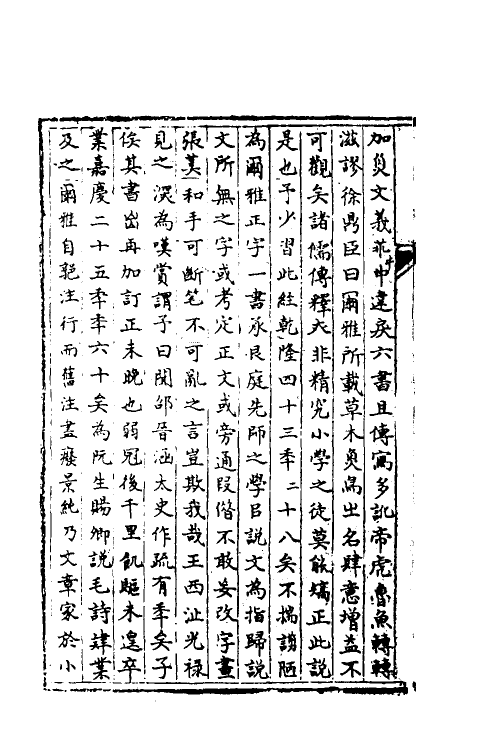 加艸文義乖𠂹違戾六書且傳寫多訛帝虎魯魚轉轉
滋謬徐鼎臣曰爾雅所載草木魚鳥出名肆意增益不
可觀矣諸儒傳釋亦非精究小學之徒莫能矯正此說
是也予少習此經乾隆四十三秊二十八矣不揣謭陋
為爾雅正字一書承艮庭先師之學㠯說文為指歸說
文所無之字或考定正文或旁通叚偕不敢妄改字畫
張其和手可斷筆不可亂之言豈欺我哉王西沚光祿
見之深為嘆賞謂予曰聞邵晉涵太史作疏有秊矣子
俟其書出再加訂正未晚也弱冠後千里飢驅未遑卒
業嘉慶二十五秊秊六十矣為阮生賜卿說毛詩肄業
及之爾雅自郭注行而舊注盡癈景純乃文章家於小